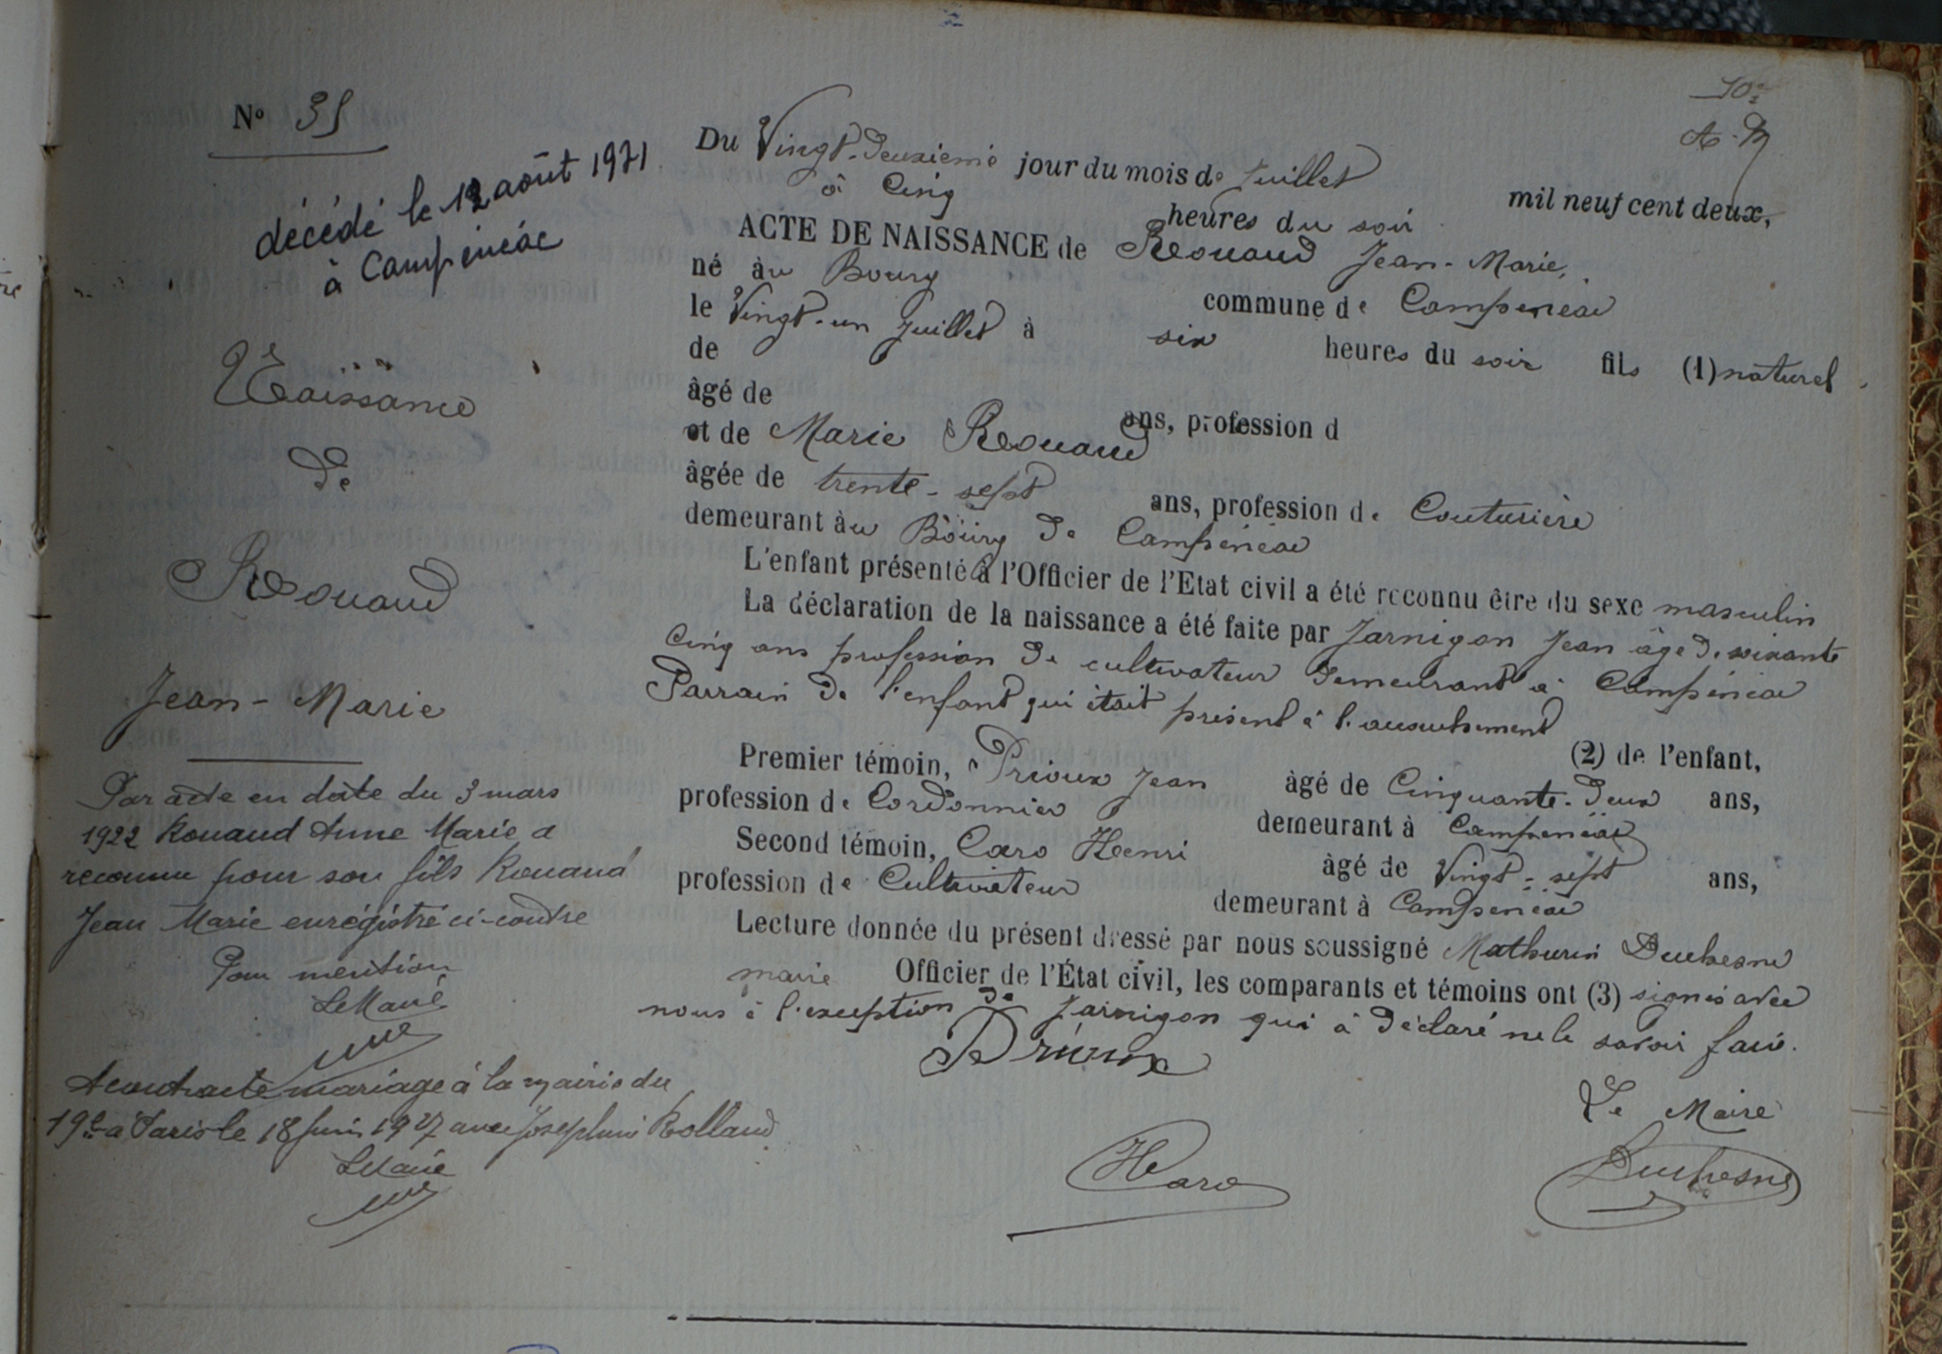 10
N° 35
décédé le 12 août 1971
à Campénéac
Naissance
de
Rouaud
Jean-Marie
Par acte en date du 3 mars
1922 Rouaud Anne Marie a
reconnu pour son fils Rouaud
Jean Marie enregistré ci-contre
Pour mention
Le Maire
A contracté mariage à la mairie du
19e à Paris le 18 juin 1927 avec Joséphine Rolland
Le Maire
Du Vingt-deuxième jour du mois de Juillet mil neuf cent deux,
à Cinq heures du soir
ACTE DE NAISSANCE de Rouaud Jean-Marie,
né au Bourg commune de Campénéac
le Vingt-un Juillet à six heures du soir fils (1) naturel
de
âgé de ans, profession d
et de Marie Rouaud
âgée de trente-sept ans, profession de Couturière
demeurant au Bourg de Campénéac
L'enfant présenté à l'Officier de l'Etat civil a été reconnu être du sexe masculin
La déclaration de la naissance a été faite par Jarnigon Jean âgé de soixante
Cinq ans profession de cultivateur demeurant à Campénéac
Parrain de l'enfant qui était présent à l'accouchement
(2) de l'enfant,
Premier témoin, Prioux Jean âgé de Cinquante-deux ans,
profession de Cordonnier demeurant à Campénéac
Second témoin, Caro Henri âgé de Vingt-sept ans,
profession de Cultivateur demeurant à Campénéac
Lecture donnée du présent dressé par nous soussigné Mathurin Duchesne
maire Officier de l'État civil, les comparants et témoins ont (3) signés avec
nous à l'exception de Jarnigon qui a déclaré ne le savoir faire.
Prioux
Le Maire
H Caro
Duchesne